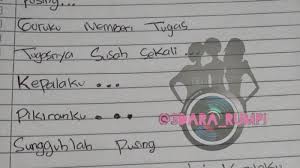 Pusing...
Guruku Memberi Tugas
Tugasnya Susah Sekali...
Kepalaku...
Pikiranku...
@SUARA_RUMPI
Sungguhlah Pusing